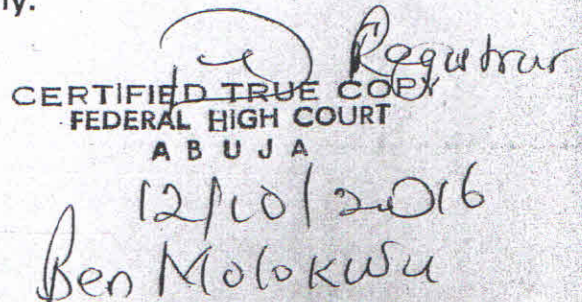 ny.
Registrar
CERTIFIED TRUE COPY
FEDERAL HIGH COURT
ABUJA
12/10/2016
Ben Molokwu